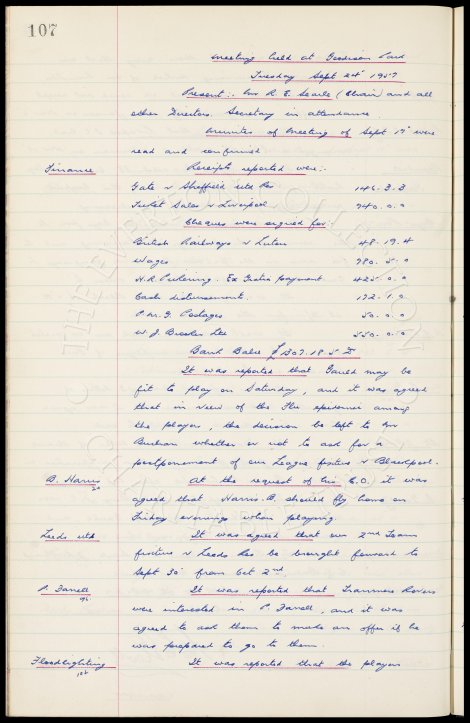 107
Meeting held at Goodison Park
Tuesday Sept 24' 1957
Present:- Mr R. E. Searle (Chair) and all
other Directors. Secretary in attendance.
Minutes of Meeting of Sept 17' were
read and confirmed.
Finance Receipts reported were:-
Gate v Sheffield Utd Res 146. 3. 3
Ticket Sales v Liverpool 940. 0. 0
Cheques were signed for:-
British Railways v Luton 48. 19. 4
Wages 780. 5. 0
N.R. Pickering. Ex Gratia payment 425. 0. 0
Cash disbursements. 172. 1. 0
P.M.G. Postages 50. 0. 0
W. J. Brookes Ltd 550. 0. 0
Bank Balce £1307. 18. 5
It was reported that Gauld may be
fit to play on Saturday, and it was agreed
that in view of the Flu epidemic among
the players, the decision be left to Mr
Buchan whether or not to ask for a
postponement of our League fixture v Blackpool.
B. Harris At the request of his C.O. it was
agreed that Harris. B. should fly home on
Friday evenings when playing.
Leeds Utd It was agreed that our 2nd Team
fixture v Leeds Res be brought forward to
Sept 30' from Oct 2nd.
P. Farrell It was reported that Tranmere Rovers
were interested in P. Farrell, and it was
agreed to ask them to make an offer if he
was prepared to go to them.
Floodlighting It was reported that the players
THE EVERTON COLLECTION